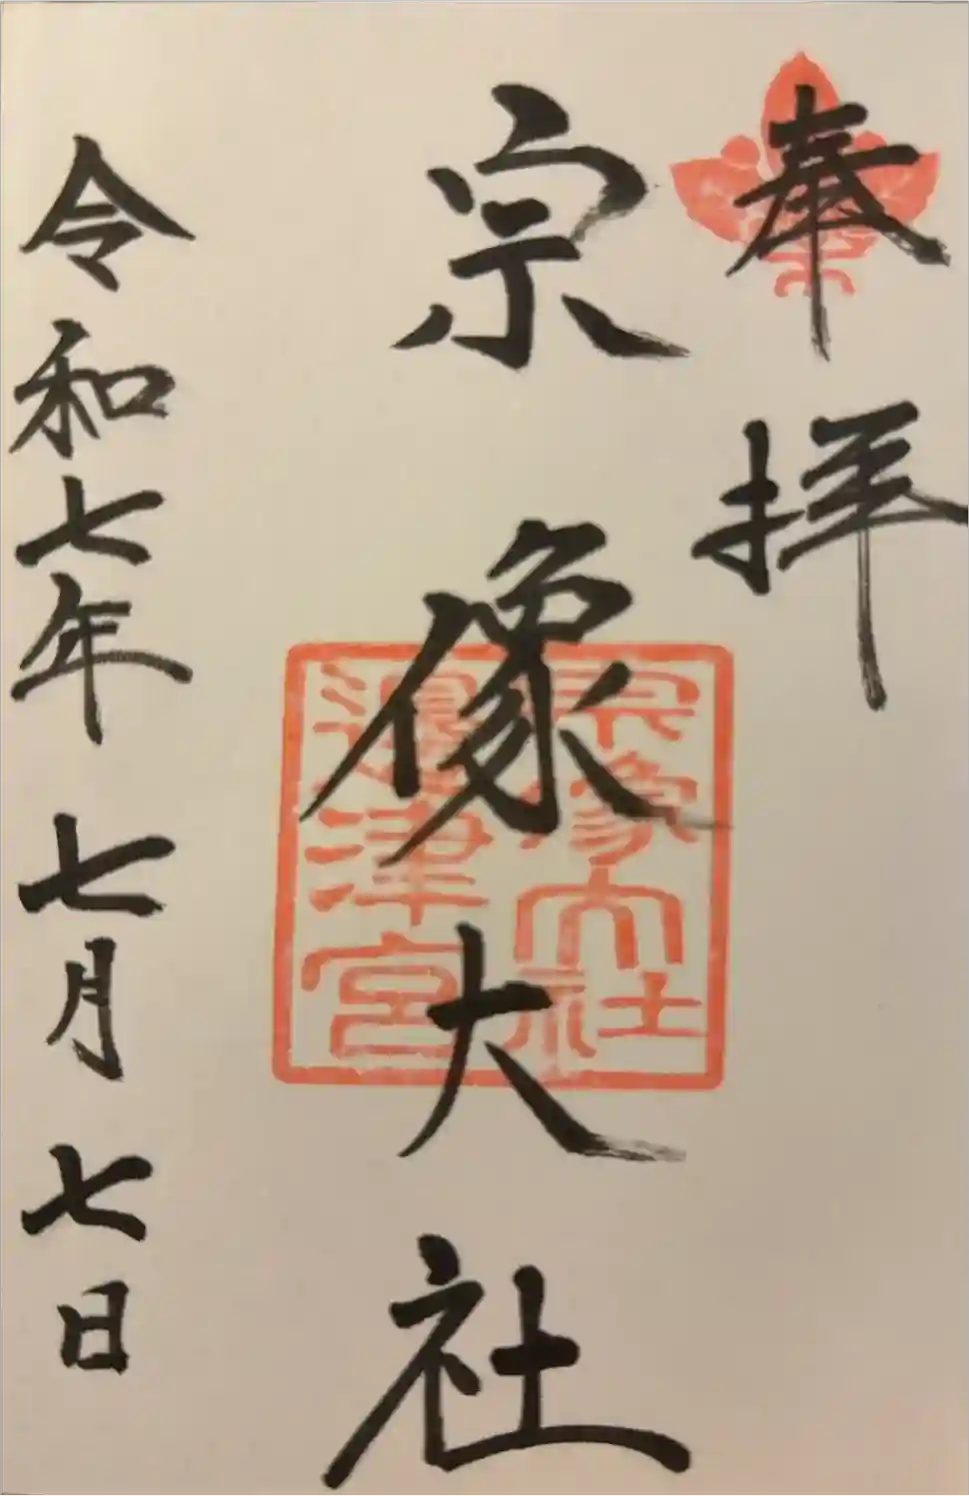 奉拝
宗像大社
宗像大社
邊津宮
令和七年 七月 七日